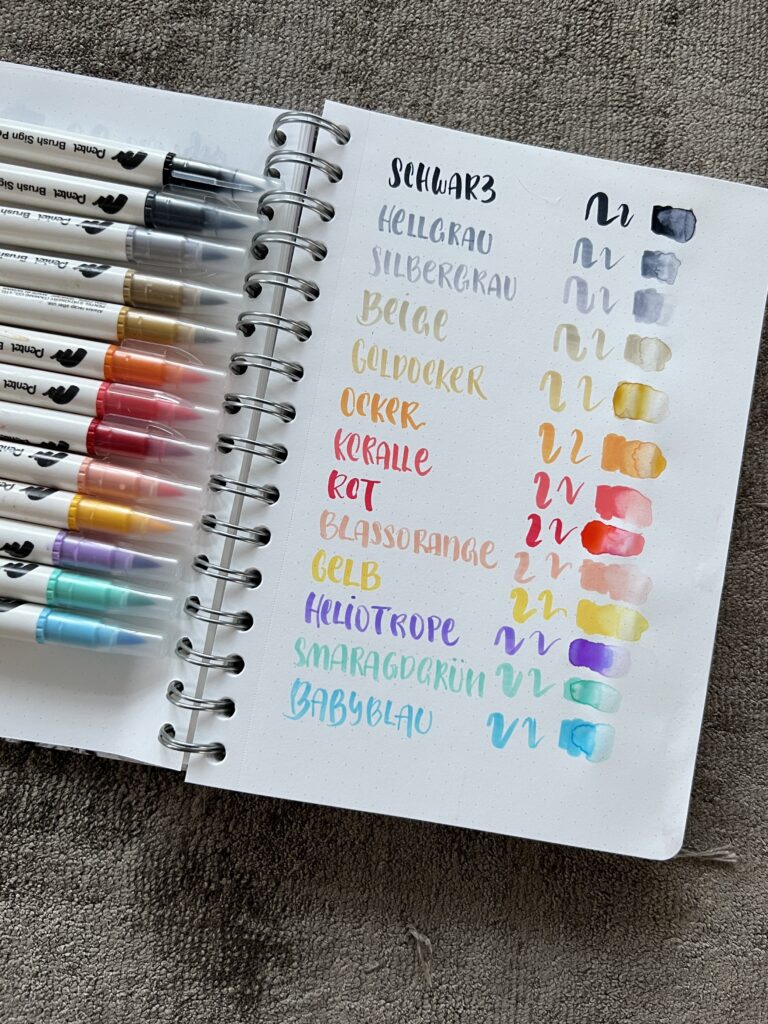 Pentel Brush Sign Pe
Pentel Brush Sign
Pentel Brush Sign
Pentel Brush
Pentel
Pentel
SCHWARZ
HELLGRAU
SILBERGRAU
BEIGE
GOLDOCKER
OCKER
KORALLE
ROT
BLASSORANGE
GELB
HELIOTROPE
SMARAGDGRÜN
BABYBLAU